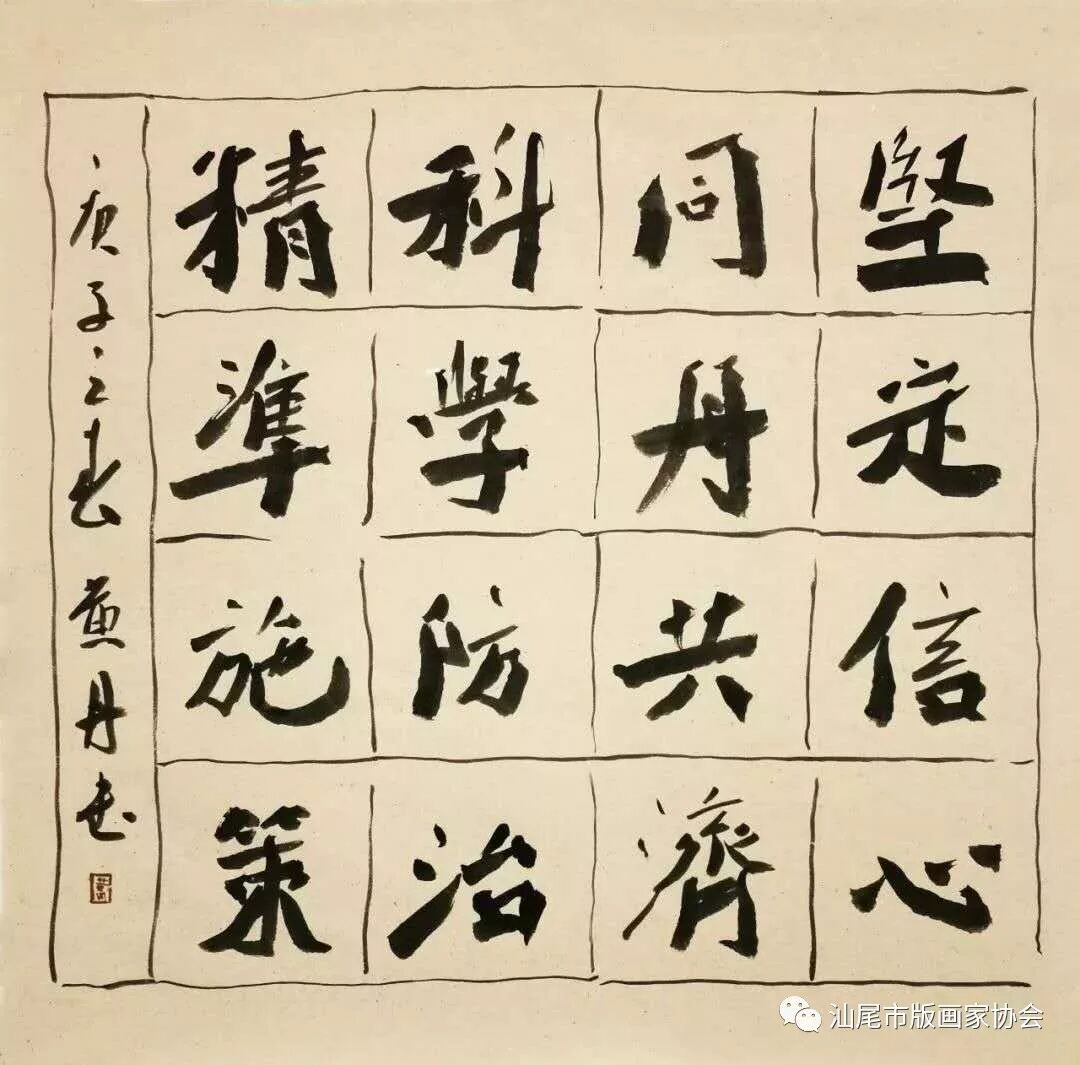 堅定信心
同舟共濟
科學防治
精準施策
庚子之春 书
汕尾市版画家协会